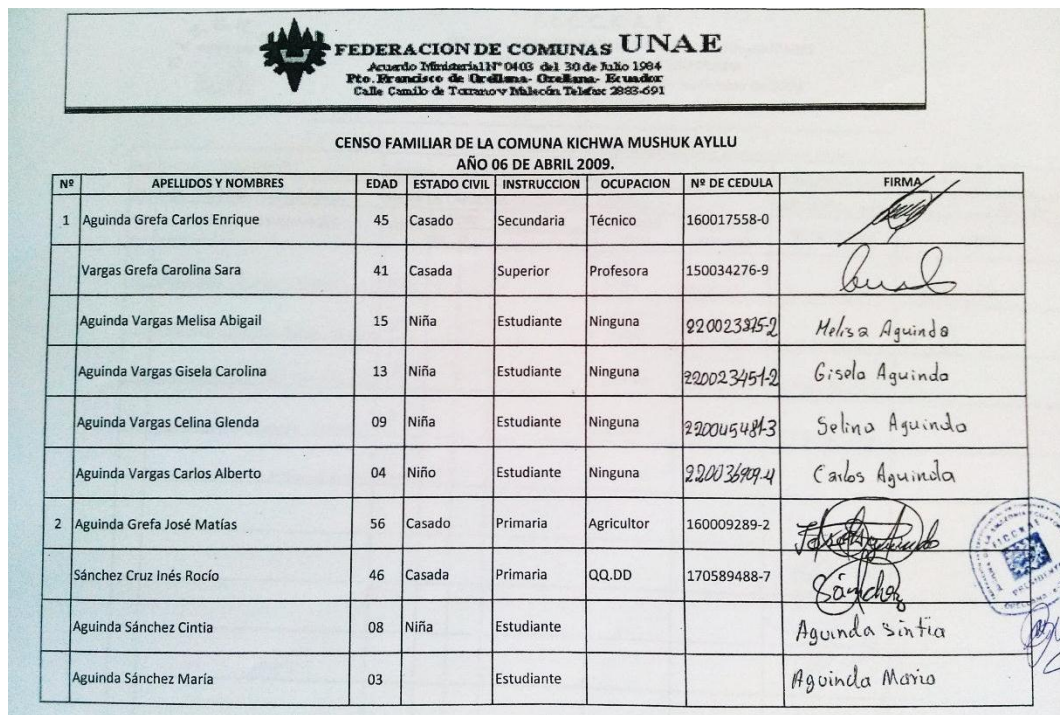 FEDERACION DE COMUNAS UNAE
Acuerdo Ministerial Nº 0403 del 30 de Julio 1984
Pto. Francisco de Orellana- Orellana- Ecuador
Calle Camilo de Torrano y Malecón Telefax 2883-691
CENSO FAMILIAR DE LA COMUNA KICHWA MUSHUK AYLLU
AÑO 06 DE ABRIL 2009.
Nº APELLIDOS Y NOMBRES EDAD ESTADO CIVIL INSTRUCCION OCUPACION Nº DE CEDULA FIRMA
1 Aguinda Grefa Carlos Enrique 45 Casado Secundaria Técnico 160017558-0
Vargas Grefa Carolina Sara 41 Casada Superior Profesora 150034276-9
Aguinda Vargas Melisa Abigail 15 Niña Estudiante Ninguna Melisa Aguinda
Aguinda Vargas Gisela Carolina 13 Niña Estudiante Ninguna 220023451-2 Gisela Aguinda
Aguinda Vargas Celina Glenda 09 Niña Estudiante Ninguna 220045481-3 Selina Aguinda
Aguinda Vargas Carlos Alberto 04 Niño Estudiante Ninguna 220036909-4 Carlos Aguinda
2 Aguinda Grefa José Matías 56 Casado Primaria Agricultor 160009289-2
Sánchez Cruz Inés Rocío 46 Casada Primaria QQ.DD 170589488-7 Sánchez
Aguinda Sánchez Cintia 08 Niña Estudiante Aguinda Sintia
Aguinda Sánchez María 03 Estudiante Aguinda Maria